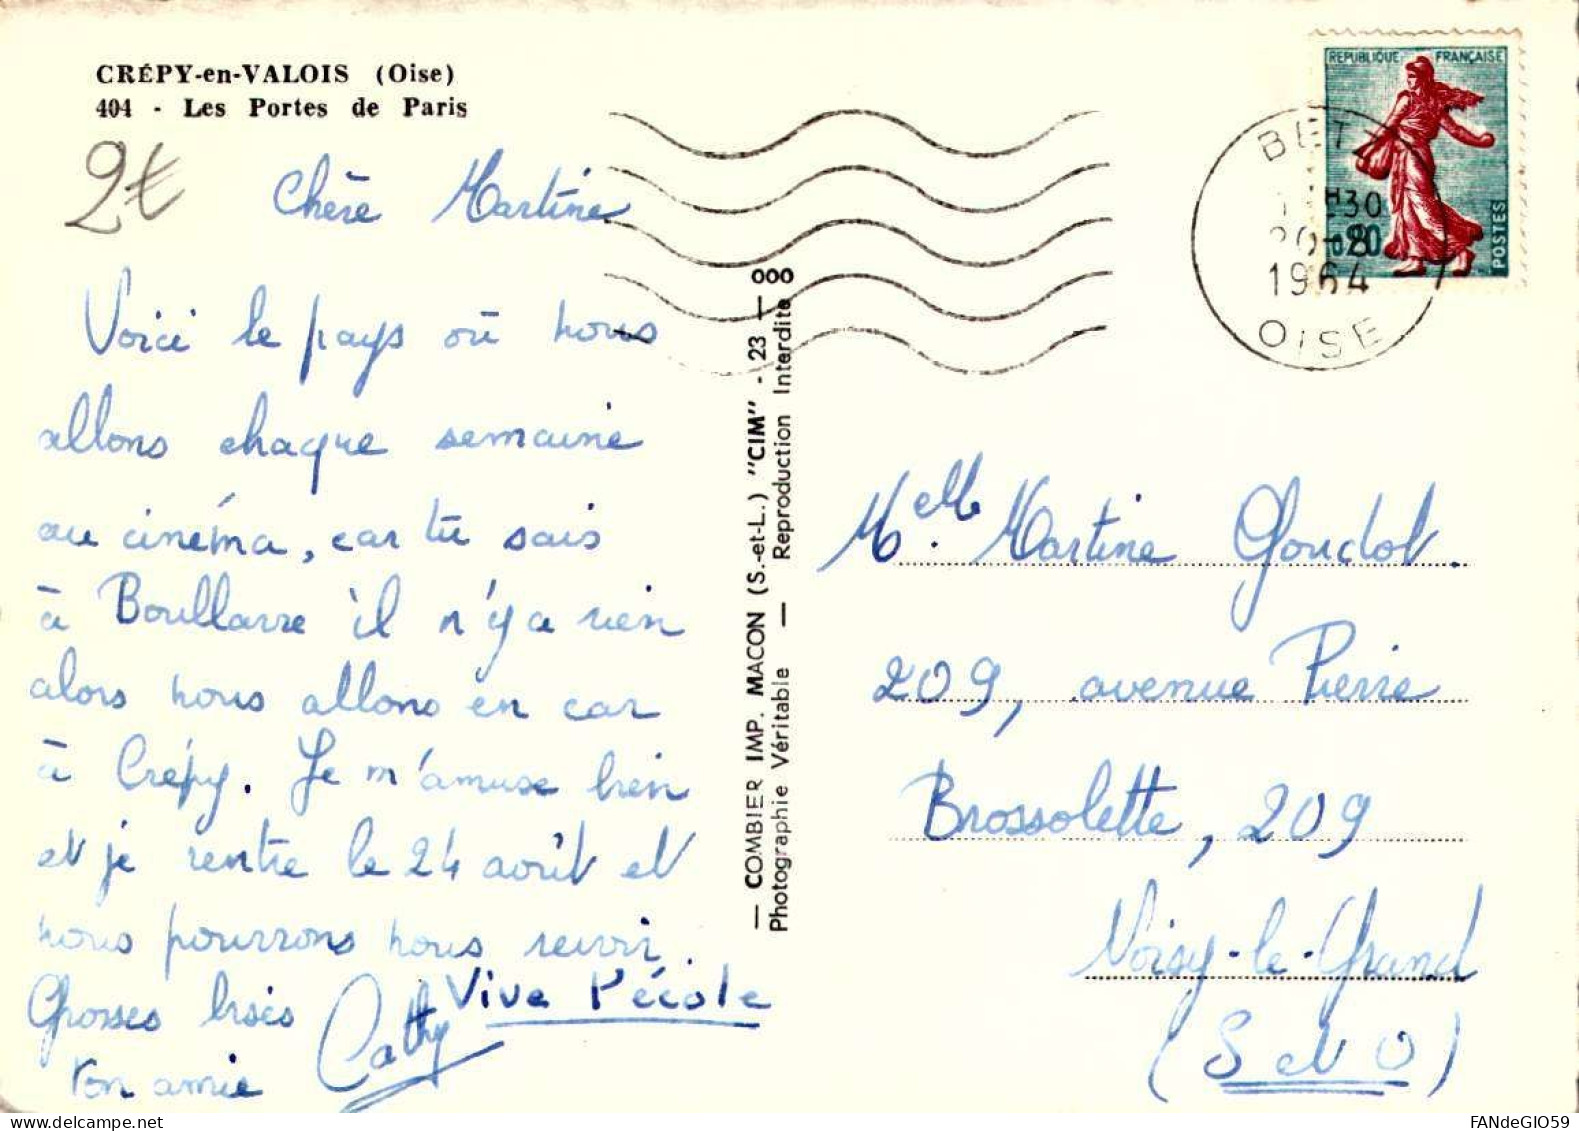 CRÉPY-en-VALOIS (Oise)
404 - Les Portes de Paris
2€
Chère Martine
Voici le pays où nous
allons chaque semaine
au cinéma, car tu sais
à Boullarre il n'y a rien
alors nous allons en car
à Crépy. Je m'amuse bien
et je rentre le 24 août et
nous pourrons nous revoir.
Grosses bises
Ton amie Cathy
Vive l'école
— COMBIER IMP. MACON (S.-et-L.) "CIM" - 23 — 000
Photographie Véritable — Reproduction Interdite
REPUBLIQUE FRANÇAISE
POSTES
0,20
H30
20-8
1964
OISE
Melle. Martine Goudot.
209, avenue Pierre
Brossolette, 209
Noisy-le-Grand
(S et O)
FANdeGIO59